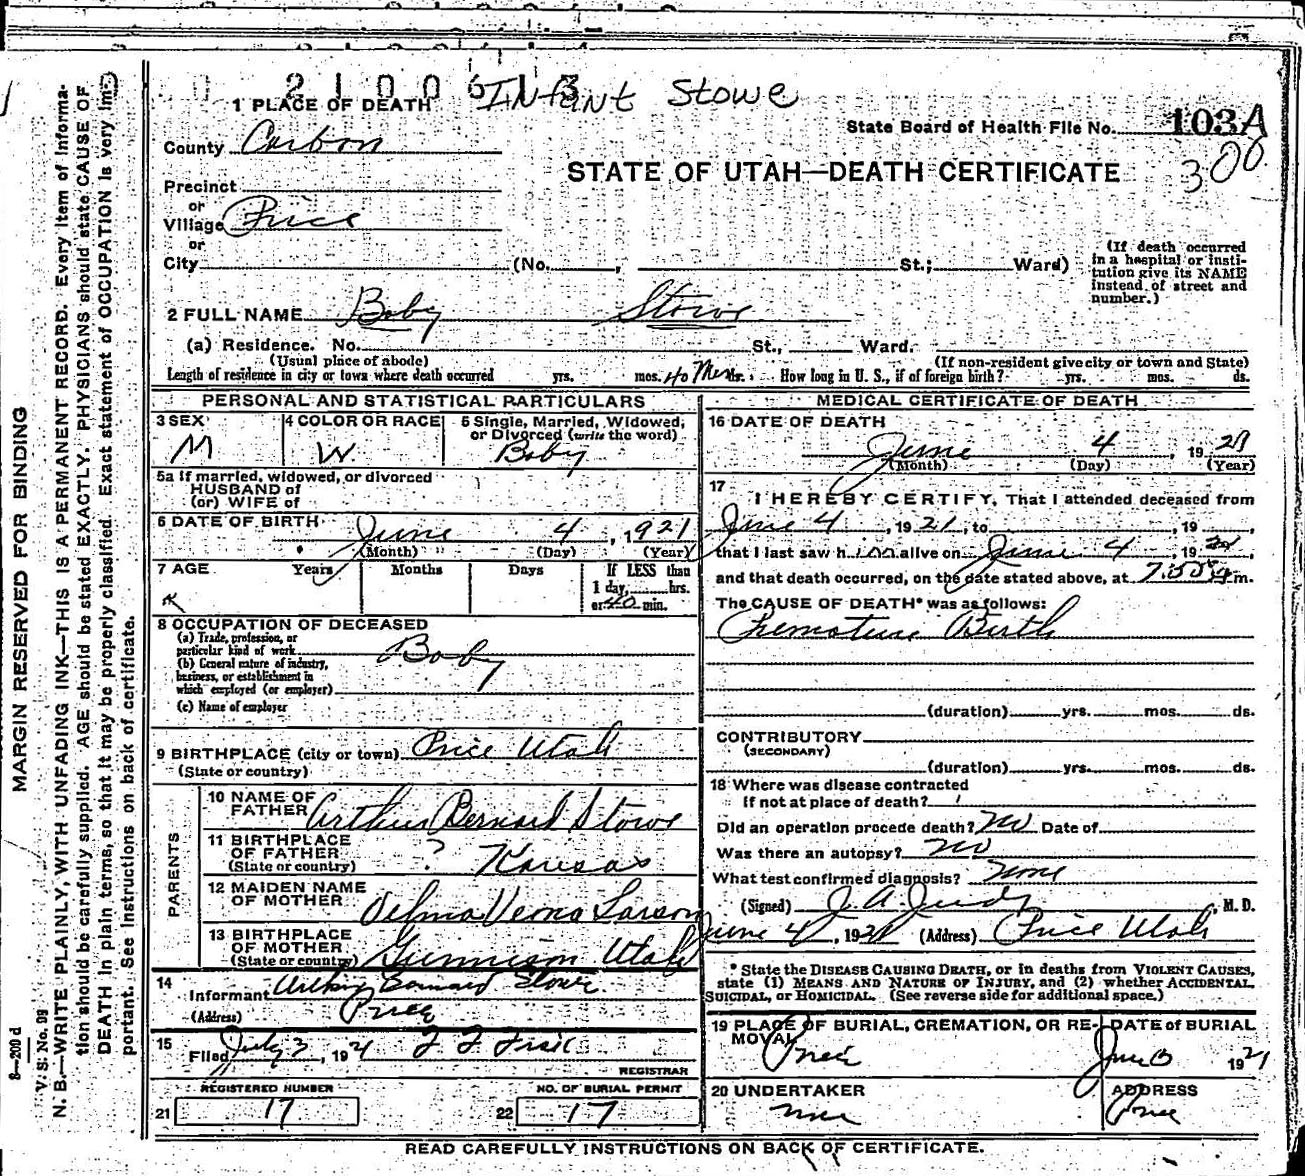 2100613 Infant Stowe
1 PLACE OF DEATH
State Board of Health File No. 103A
300
County Carbon
STATE OF UTAH—DEATH CERTIFICATE
Precinct
or
Village Price
or
City (No. , St.; Ward)
(If death occurred in a hospital or insti-
tution give its NAME
instead of street and
number.)
2 FULL NAME Baby Stowe
(a) Residence. No. St., Ward.
(Usual place of abode) (If non-resident give city or town and State)
Length of residence in city or town where death occurred yrs. mos. 40 How long in U. S., if of foreign birth? yrs. mos. ds.
PERSONAL AND STATISTICAL PARTICULARS
3 SEX M
4 COLOR OR RACE W
5 Single, Married, Widowed,
or Divorced (write the word)
Baby
5a If married, widowed, or divorced
HUSBAND of
(or) WIFE of
6 DATE OF BIRTH June 4, 1921
(Month) (Day) (Year)
7 AGE Years Months Days If LESS than
1 day, hrs.
or 40 min.
8 OCCUPATION OF DECEASED
(a) Trade, profession, or
particular kind of work Baby
(b) General nature of industry,
business, or establishment in
which employed (or employer)
(c) Name of employer
9 BIRTHPLACE (city or town) Price Utah
(State or country)
PARENTS
10 NAME OF
FATHER Arthur Bernard Stowe
11 BIRTHPLACE
OF FATHER ? Kansas
(State or country)
12 MAIDEN NAME
OF MOTHER Velma Verna Larson
13 BIRTHPLACE
OF MOTHER
(State or country) Gunnison Utah
14
Informant Stowe
(Address) Price
15
Filed July 3, 1921
REGISTRAR
REGISTERED NUMBER
21 17
NO. OF BURIAL PERMIT
22 17
MEDICAL CERTIFICATE OF DEATH
16 DATE OF DEATH
June 4, 1921
(Month) (Day) (Year)
17
I HEREBY CERTIFY, That I attended deceased from
June 4, 1921, to , 19 ,
that I last saw him alive on June 4, 1921,
and that death occurred, on the date stated above, at m.
The CAUSE OF DEATH* was as follows:
Premature Birth
(duration) yrs. mos. ds.
CONTRIBUTORY
(SECONDARY)
(duration) yrs. mos. ds.
18 Where was disease contracted
if not at place of death?
Did an operation precede death? No Date of
Was there an autopsy? No
What test confirmed diagnosis? None
(Signed) J. A. Judy, M. D.
June 4, 1921 (Address) Price Utah
* State the DISEASE CAUSING DEATH, or in deaths from VIOLENT CAUSES,
state (1) MEANS AND NATURE OF INJURY, and (2) whether ACCIDENTAL,
SUICIDAL, or HOMICIDAL. (See reverse side for additional space.)
19 PLACE OF BURIAL, CREMATION, OR RE-
MOVAL Price
DATE of BURIAL
June 1921
20 UNDERTAKER
None
ADDRESS
Price
READ CAREFULLY INSTRUCTIONS ON BACK OF CERTIFICATE.
MARGIN RESERVED FOR BINDING
8—200 d
V. S. No. 09
N. B.—WRITE PLAINLY, WITH UNFADING INK—THIS IS A PERMANENT RECORD. Every item of informa-
tion should be carefully supplied. AGE should be stated EXACTLY. PHYSICIANS should state CAUSE OF
DEATH in plain terms, so that it may be properly classified. Exact statement of OCCUPATION is very im-
portant. See instructions on back of certificate.